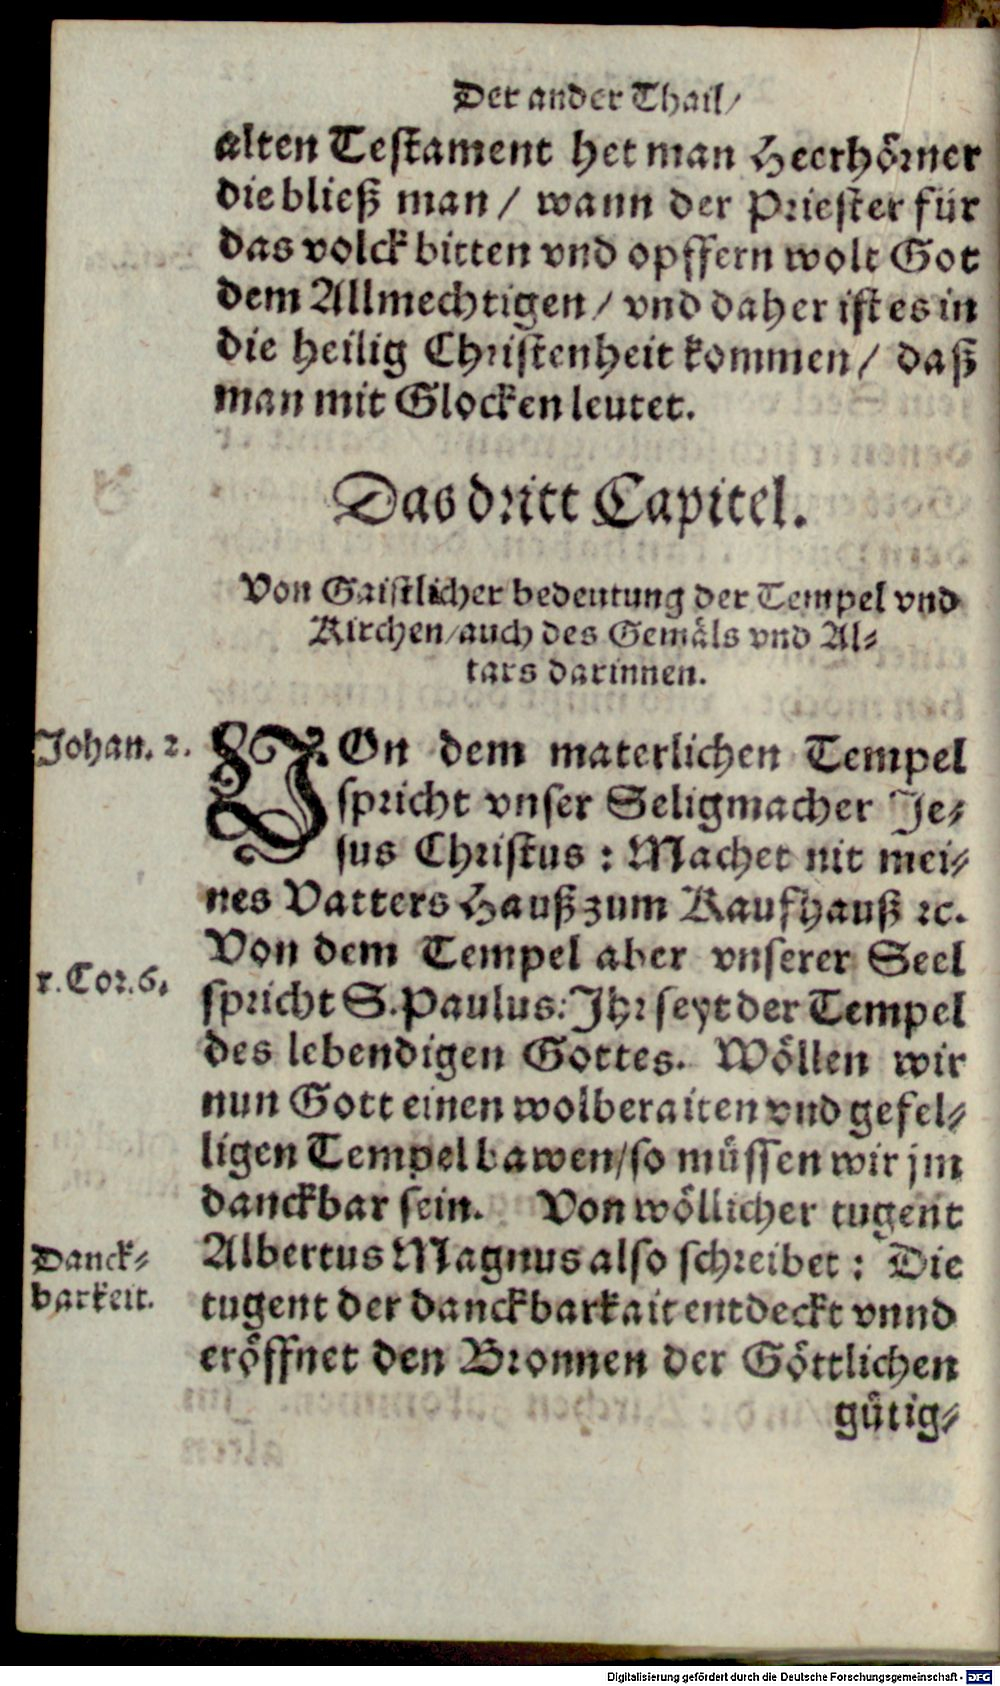 Der ander Thail/
alten Testament het man Heerhörner
die bließ man / wann der Priester für
das volck bitten vnd opffern wolt Got
dem Allmechtigen / vnd daher ist es in
die heilig Christenheit kommen / daß
man mit Glocken leutet.
Das dritt Capitel.
Von Gaistlicher bedeutung der Tempel vnd
Kirchen/auch des Gemäls vnd Al-
tars darinnen.
Johan. 2.
VOn dem materlichen Tempel
spricht vnser Seligmacher Je-
sus Christus : Machet nit mei-
nes Vatters Hauß zum Kaufhauß ꝛc.
Von dem Tempel aber vnserer Seel
1. Cor. 6.
spricht S. Paulus: Ihr seyt der Tempel
des lebendigen Gottes. Wöllen wir
nun Gott einen wolberaiten vnd gefel-
ligen Tempel bawen/so müssen wir jm
danckbar sein. Von wöllicher tugent
Danck-
barkeit.
Albertus Magnus also schreibet : Die
tugent der danckbarkait entdeckt vnnd
eröffnet den Bronnen der Göttlichen
gütig-
Digitalisierung gefördert durch die Deutsche Forschungsgemeinschaft - DFG